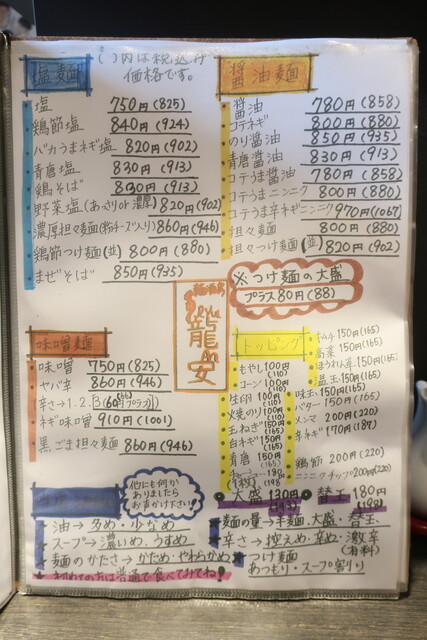 ( )内は税込み
価格です。
塩麺
塩 750円(825)
鶏節塩 840円(924)
バカうまネギ塩 820(902)
青唐塩 830(913)
鶏そば 830(913)
野菜塩(あっさりor濃厚) 820(902)
濃厚担々麺(粉チーズ入り) 860円(946)
鶏節つけ麺(並) 800円(880)
まぜそば 850円(935)
醤油麺
醤油 780円(858)
コテネギ 800円(880)
のり醤油 850円(935)
青唐醤油 830円(913)
コテうま醤油 780円(858)
コテうまニンニク 800円(880)
コテうま辛ネギニンニク 970円(1067)
担々麺 800円(880)
担々つけ麺(並) 820円(902)
※つけ麺の大盛
プラス80円(88)
龍安
味噌麺
味噌 750円(825)
ヤバ辛 860円(946)
辛さ→1.2.3
ネギ味噌 910円(1001)
黒ごま担々麺 860円(946)
トッピング
もやし100円(110)
コーン100円(110)
生卵100円(110)
焼のり100円(110)
玉ねぎ150円(165)
白ネギ150円(165)
青唐150円(165)
キムチ150円(165)
高菜150円(165)
ほうれん草150円(165)
味玉150円(165)
バター150円(165)
メンマ200円(220)
辛ネギ170円(187)
鶏節200円(220)
ニンニクチップ200円(220)
大盛130円(143) 替玉180円(198)
他にも何か
ありましたら
お声かけ下さい!
油→多め・少なめ
スープ→濃いめ、うすめ
麺のかたさ→かため・やわらかめ
初めての方は普通で食べてみてね!
麺の量→半麺、大盛・替玉
辛さ→控えめ・辛め・激辛(有料)
つけ麺
あつもり・スープ割り